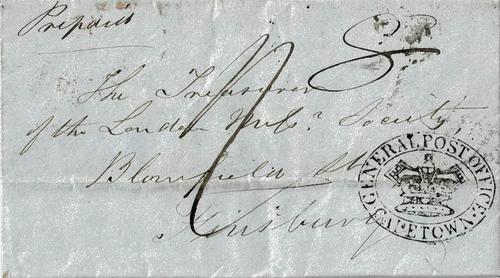 Prepaid
8
The Treasurer
of the London Missy. Society,
Blomfield St
Finsbury
GENERAL POST OFFICE
CAPE TOWN